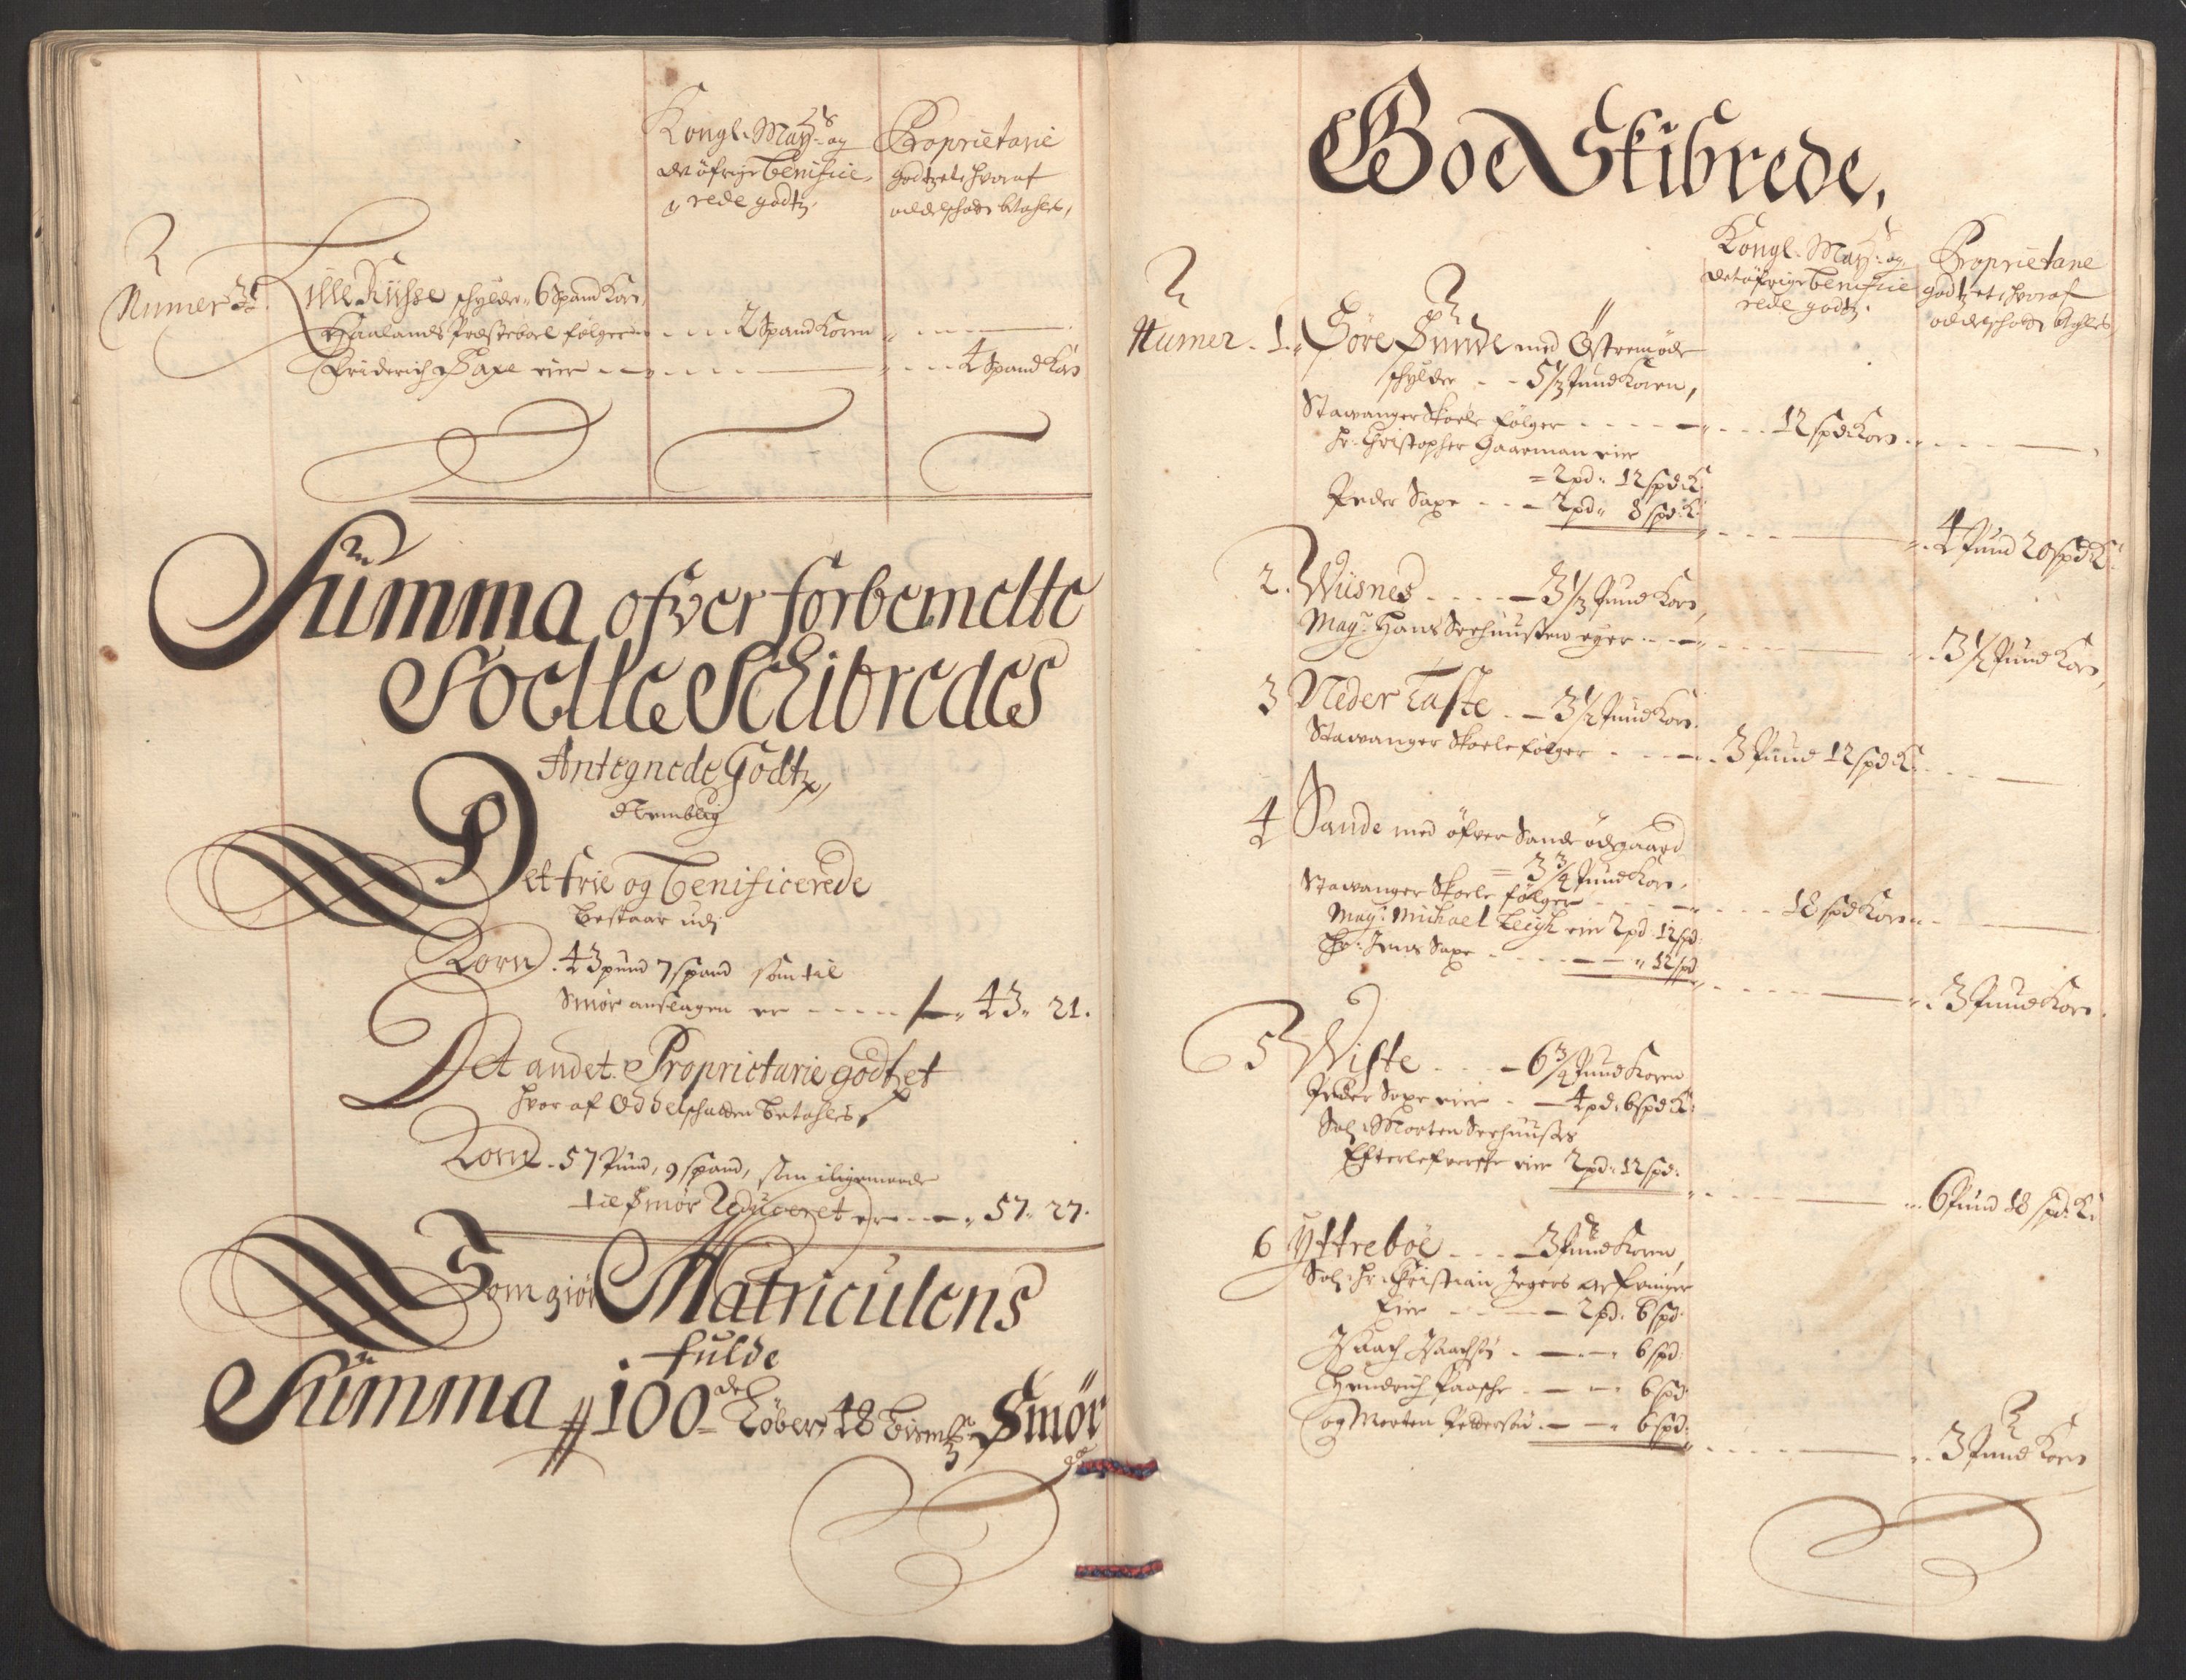 Kongl. May:s og
det öfrige Benificie
rede godtz.
Proprietarie
godtzet, hvoraf
oddelschatt betahles,
Numer
Lille Riisse schylder 6 Spand Korn,
Haalands Præsteboel følger 2 Spand Koren
Friderich Saxe eier 4 Spand Korn
Summa ofver forbemelte
Soelle Schibredes
Antegnede Godtz,
Nemblig
Det frie og Benificerede
bestaar udj
Korn. 43 pund 7 spand som til
Smør anslagen er 43 " 21.
Det andet Proprietarie godtzet
hvor af Oddelschatten betahles,
Korn. 57 Pund, 9 spand, som iligemaade
til Smør Reduceret er 57 " 27.
Som giør Matriculens
fulde
Summa 100de Løber 48 bismr Smør
Goe Skibrede,
Kongl. May:s og
det öfrige Benificie
rede godtz.
Proprietarie
godtzet, hvoraf
oddelschatt betahles,
Numer 1. Søre Sunde med Østremøde
schylder 5 1/3 Pund Koren,
Stawanger Skoele følger 12 spd Korn
Hr. Christopher Gaarman eier
= 2 pd 12 spd K.
Peder Saxe 2 pd 8 spd K.
4 Pund 20 spd K.
2. Wiisnes 3 1/2 Pund Korn,
May: Hans Seehuusen eyer 3 1/2 Pund Korn,
3 Neder Taste 3 1/2 Pund Korn.
Stawanger Skoele følger 3 Pund 12 spd K.
4 Sande med öfver Sande ödegaard
= 3 3/4 Pund Korn,
Stawanger Skoele følger 18 spd Koren
May: Michael Leigh eier 2 pd 12 spd:
Hr. Jens Saxe 12 spd
3 Pund Korn.
5 Wiste 6 3/4 Pund Koren
Peder Saxe eier 4 pd 6 spd K:
Sal: Morten Seehuuses
Efterlefverske eier 2 pd 12 spd:
6 Pund 18 spd: K:
6 Yttrebøe 3 Pund Koren,
Sal: Hr. Christian Jegers arfvinger
Eier 2 pd: 6 spd:
Isaach Isaachsøn 6 spd:
Hendrich Paasche 6 spd:
og Morten Pedersøn 6 spd:
3 Pund Korn